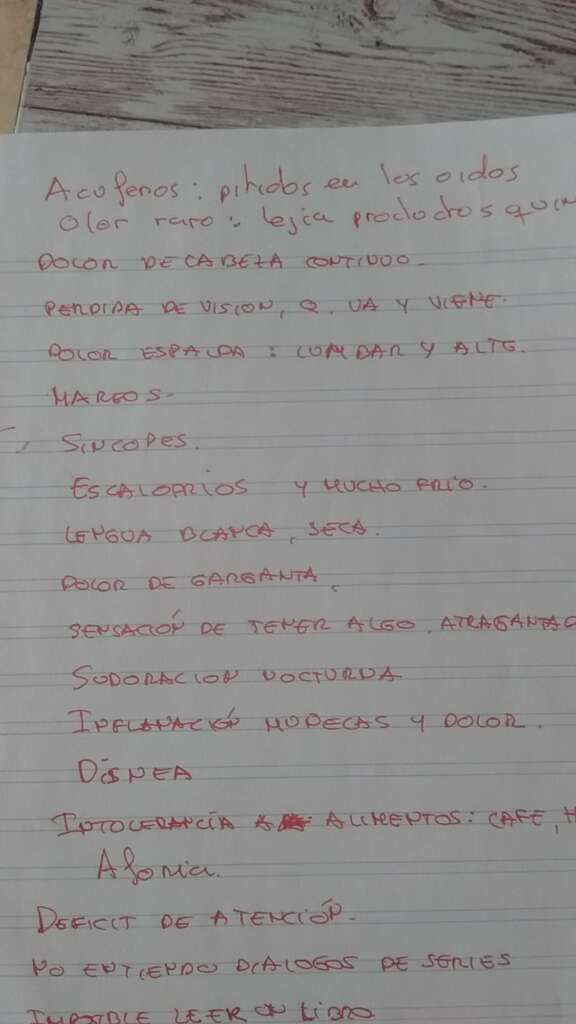 Acufenos: pitidos en los oidos
Olor raro: lejia prodoctos quim
DOLOR DE CABEZA CONTINUO.
PERDIDA DE VISION, Q. VA Y VIENE.
DOLOR ESPALDA: LUMBAR Y ALTO.
MAREOS.
SINCOPES.
ESCALOFRIOS Y MUCHO FRIO.
LENGUA BLANCA, SECA.
DOLOR DE GARGANTA.
SENSACIÓN DE TENER ALGO ATRAGANTAD
SUDORACION NOCTURNA
INFLAMACIÓN MUÑECAS Y DOLOR.
DISNEA
INTOLERANCIA ALIMENTOS: CAFE,
Afonia.
DEFICIT DE ATENCIÓN.
NO ENTIENDO DIALOGOS DE SERIES
IMPOSIBLE LEER UN LIBRO